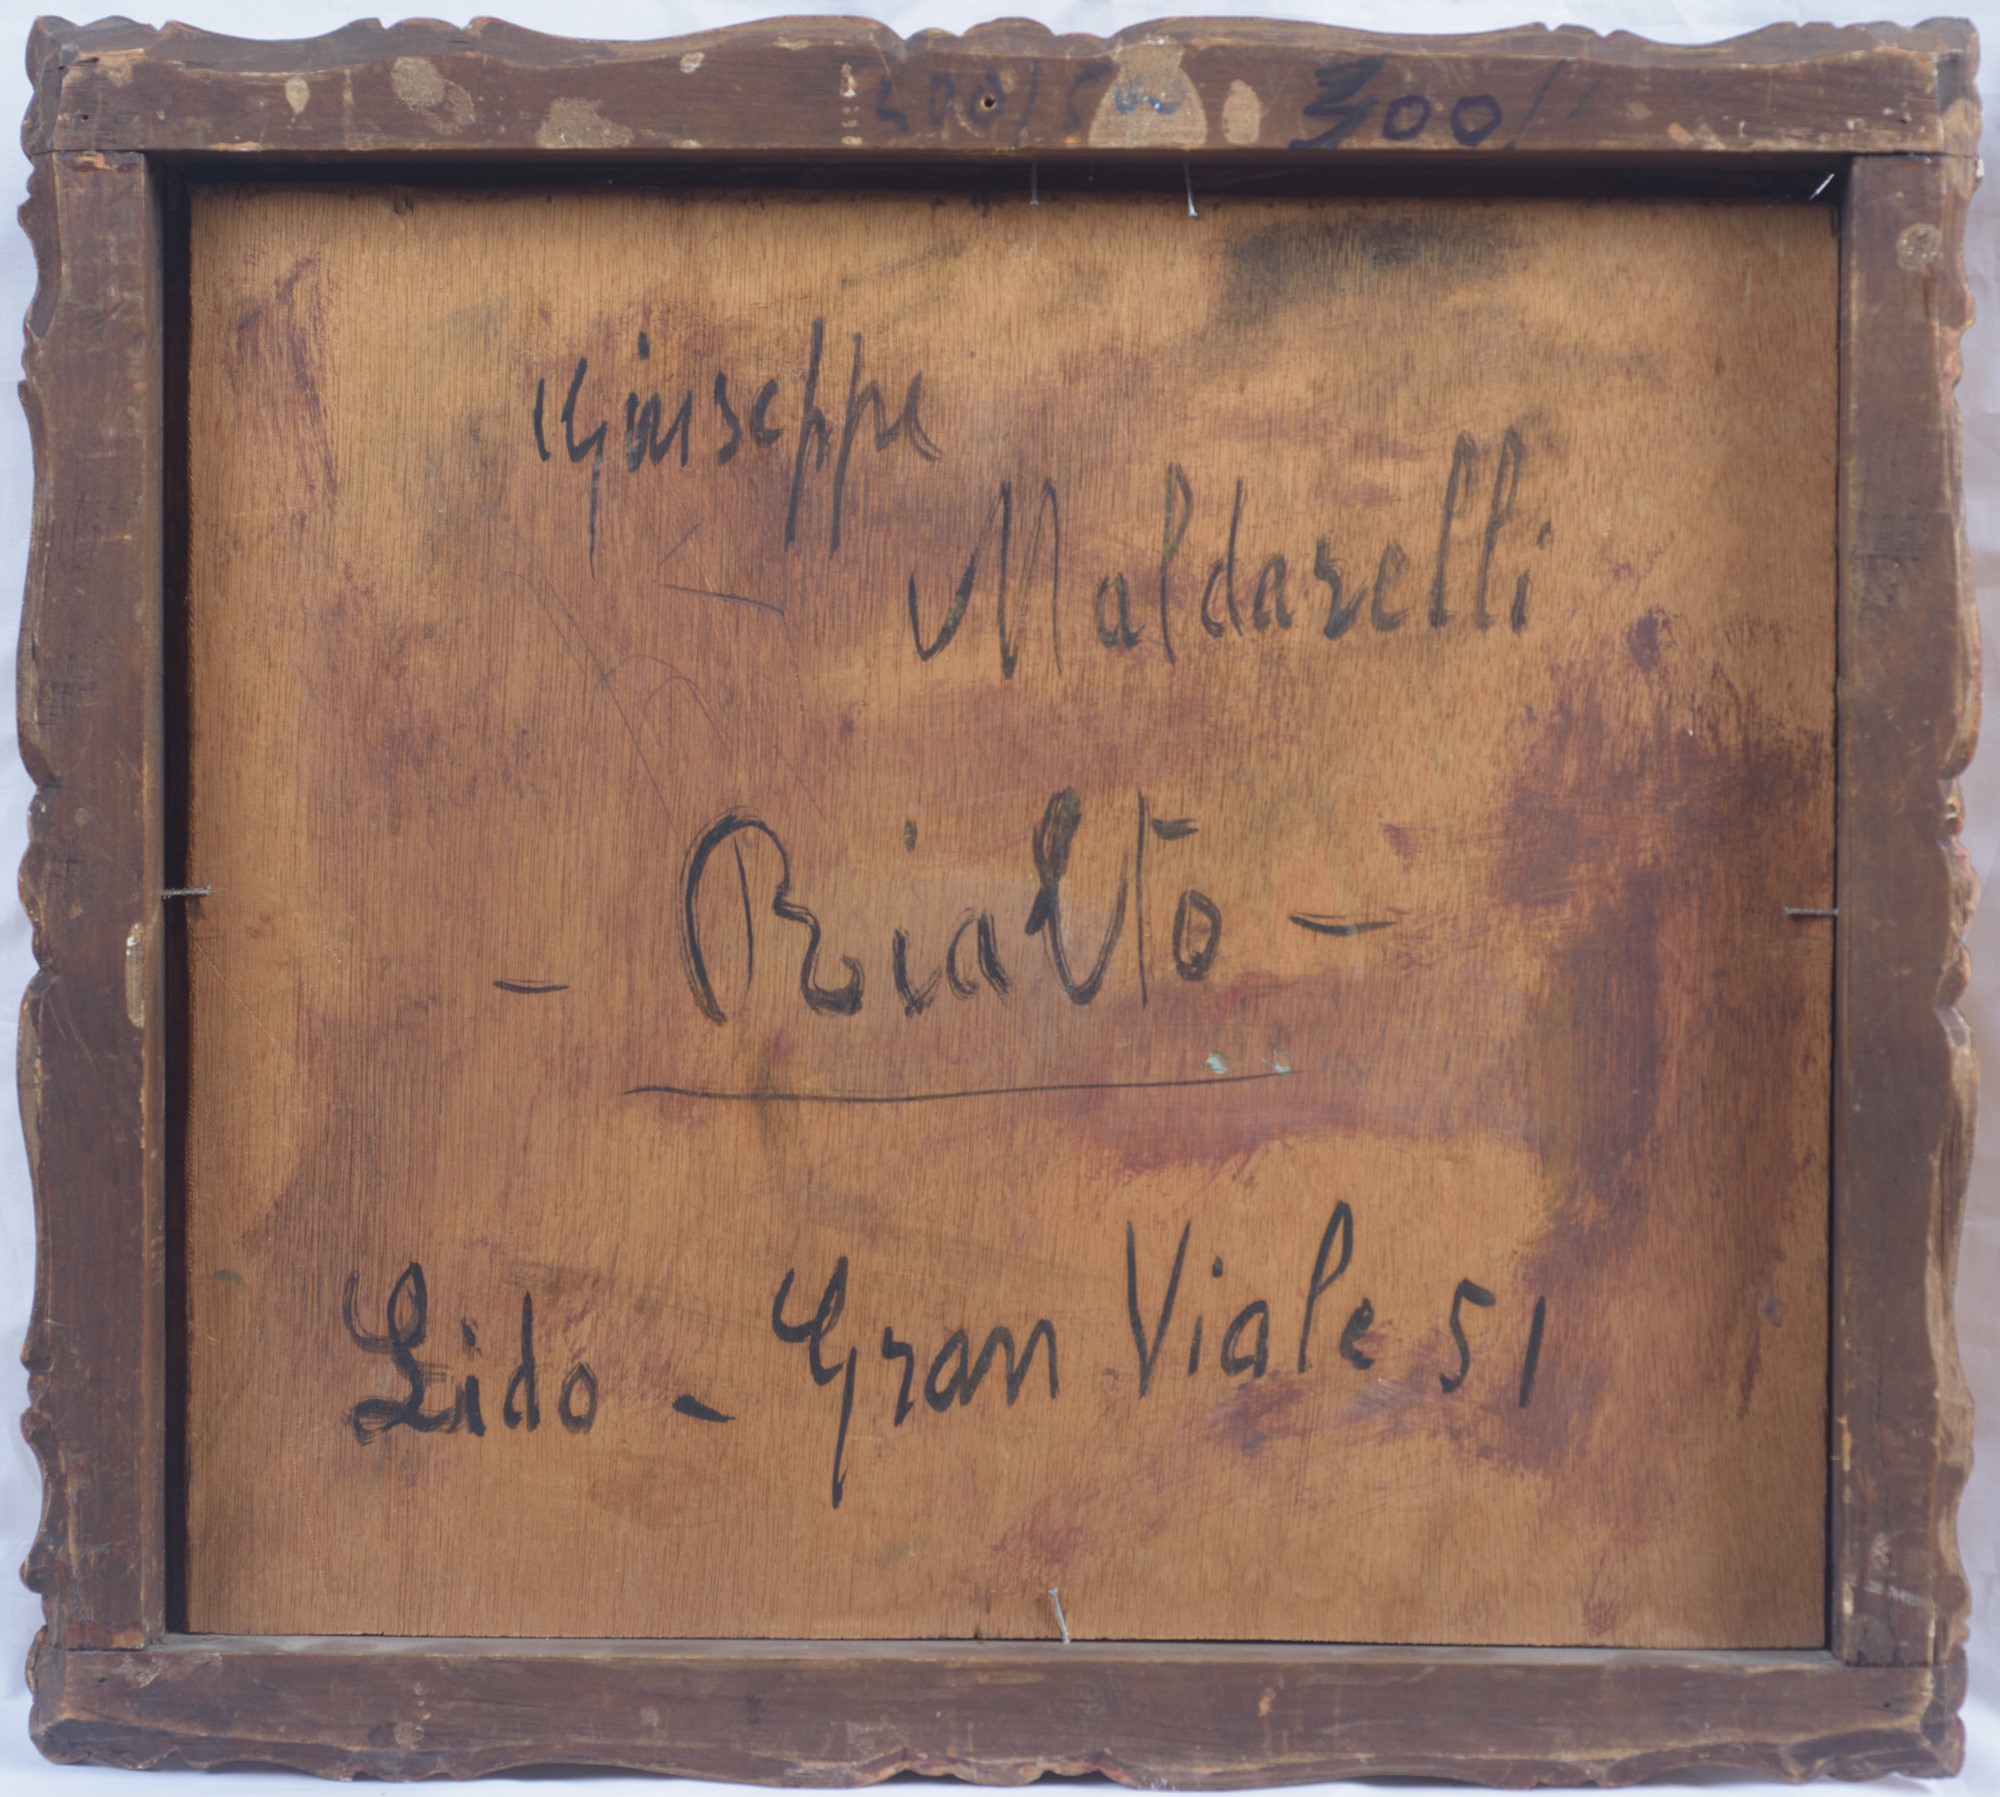 300//
Giuseppe
Maldarelli
- Rialto -
Lido - Gran Viale 51